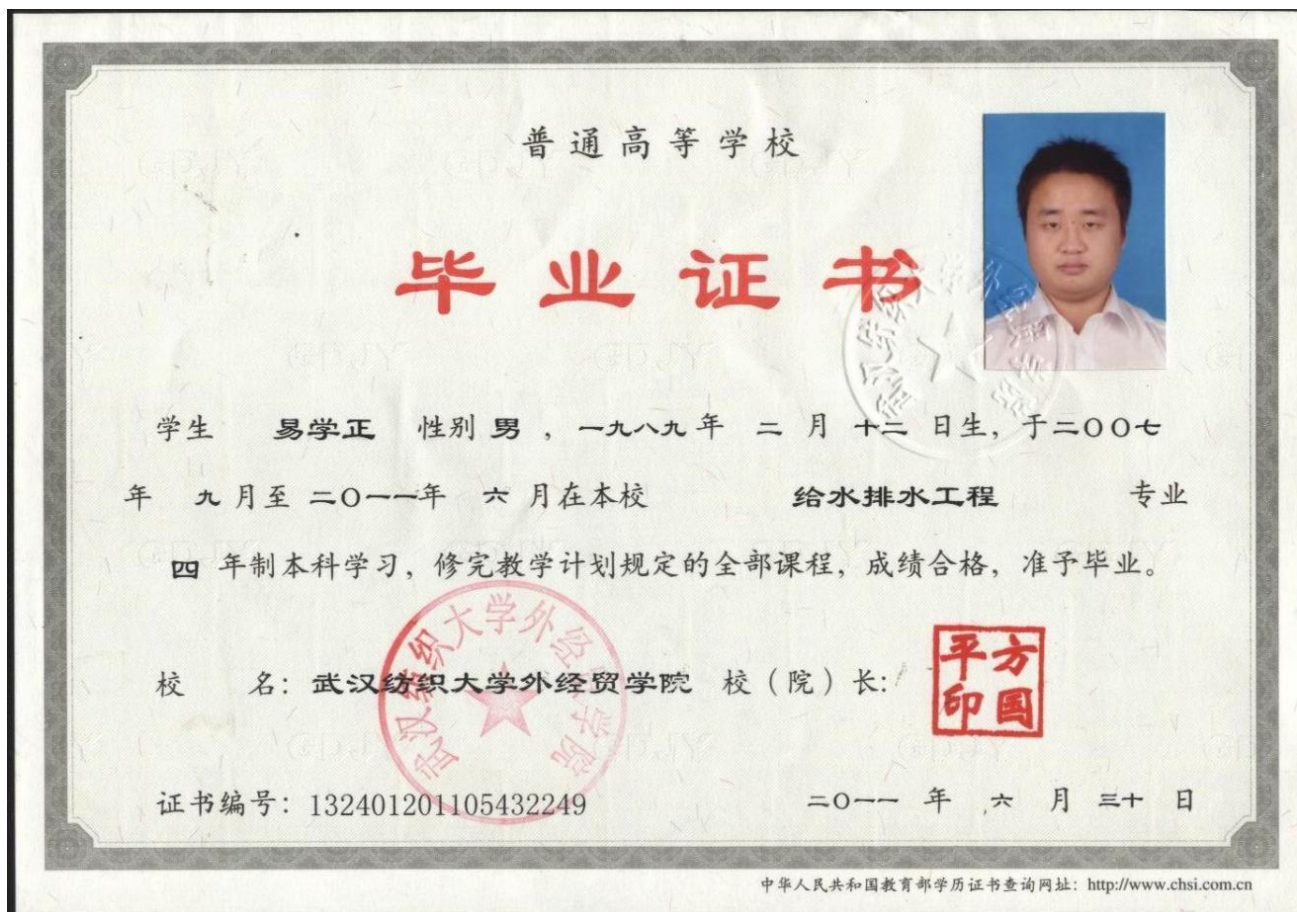 普通高等学校
毕业证书
学生 易学正 性别 男 , 一九八九 年 二 月 十二 日生, 于二〇〇七
年 九 月至 二〇一一年 六 月在本校 给水排水工程 专业
四 年制本科学习, 修完教学计划规定的全部课程, 成绩合格, 准予毕业。
校 名: 武汉纺织大学外经贸学院 校（院）长:
方国平印
武汉纺织大学外经贸学院
武汉纺织大学外经贸学院
证书编号: 132401201105432249 二〇一一 年 六 月 三十 日
中华人民共和国教育部学历证书查询网址: http://www.chsi.com.cn